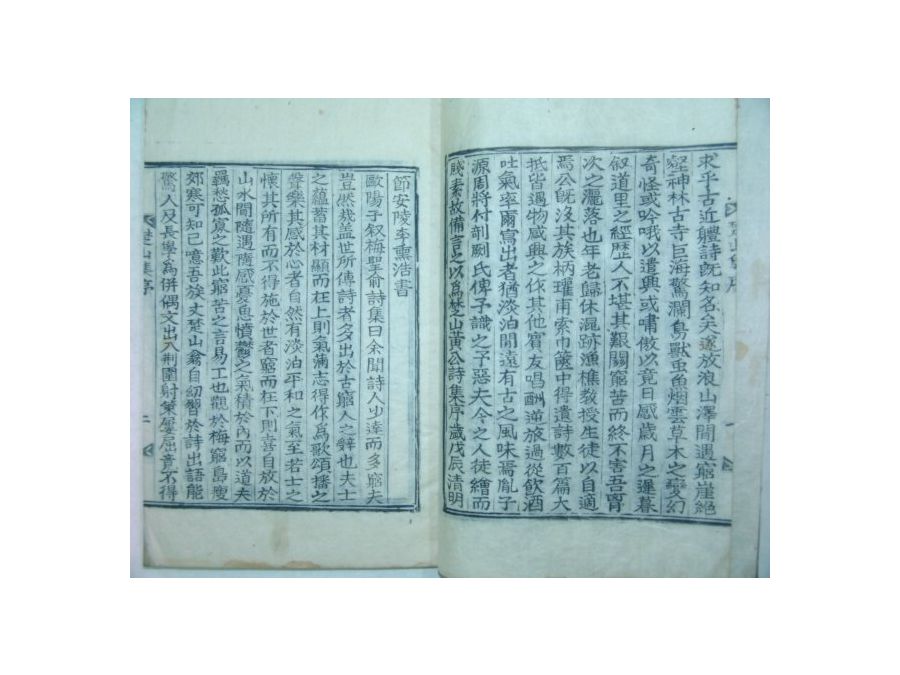 求乎古近體詩旣知名矣遂放浪山澤間遇窮崖絕
壑神林古寺巨海驚瀾鳥獸虫魚烟雲草木之變幻
奇怪或吟哦以遣興或嘯傲以竟日感歲月之遲暮
叙道里之經歷人不堪其艱關窮苦而終不害吾胷
次之灑落也年老歸休混跡漁樵敎授生徒以自適
焉公旣沒其族柄瓘甫索巾篋中得遺詩數百篇大
抵皆遇物感興之作其他賓友唱酬逆旅過從飮酒
吐氣率爾寫出者猶淡泊間遠有古之風味焉胤子
源周將付剞劂氏俾予識之予惡夫今之人徒繪而
賤素故備言之以爲楚山黃公詩集序歲戊辰清明
節安陵李熏浩書
歐陽子叙梅聖兪詩集曰余聞詩人少達而多窮夫
豈然㢤盖世所傳詩者多出於古窮人之辭也夫士
之蘊蓄其材顯而在上則氣滿志得作爲歌頌播之
聲樂其感於心者自然有淡泊平和之氣至若士之
懷其所有而不得施於世者窮而在下則喜自放於
山水間隨遇隨感憂
憤鬱之氣積於內而以道夫
羈愁孤
之歎此窮苦之言易工也觀於梅窮島瘦
郊寒可知已噫吾族丈楚山翁自幼習於詩出語能
驚人及長學爲倂偶文出入荆圍射策屢屈竟不得
楚山集序
二
楚山集序
一